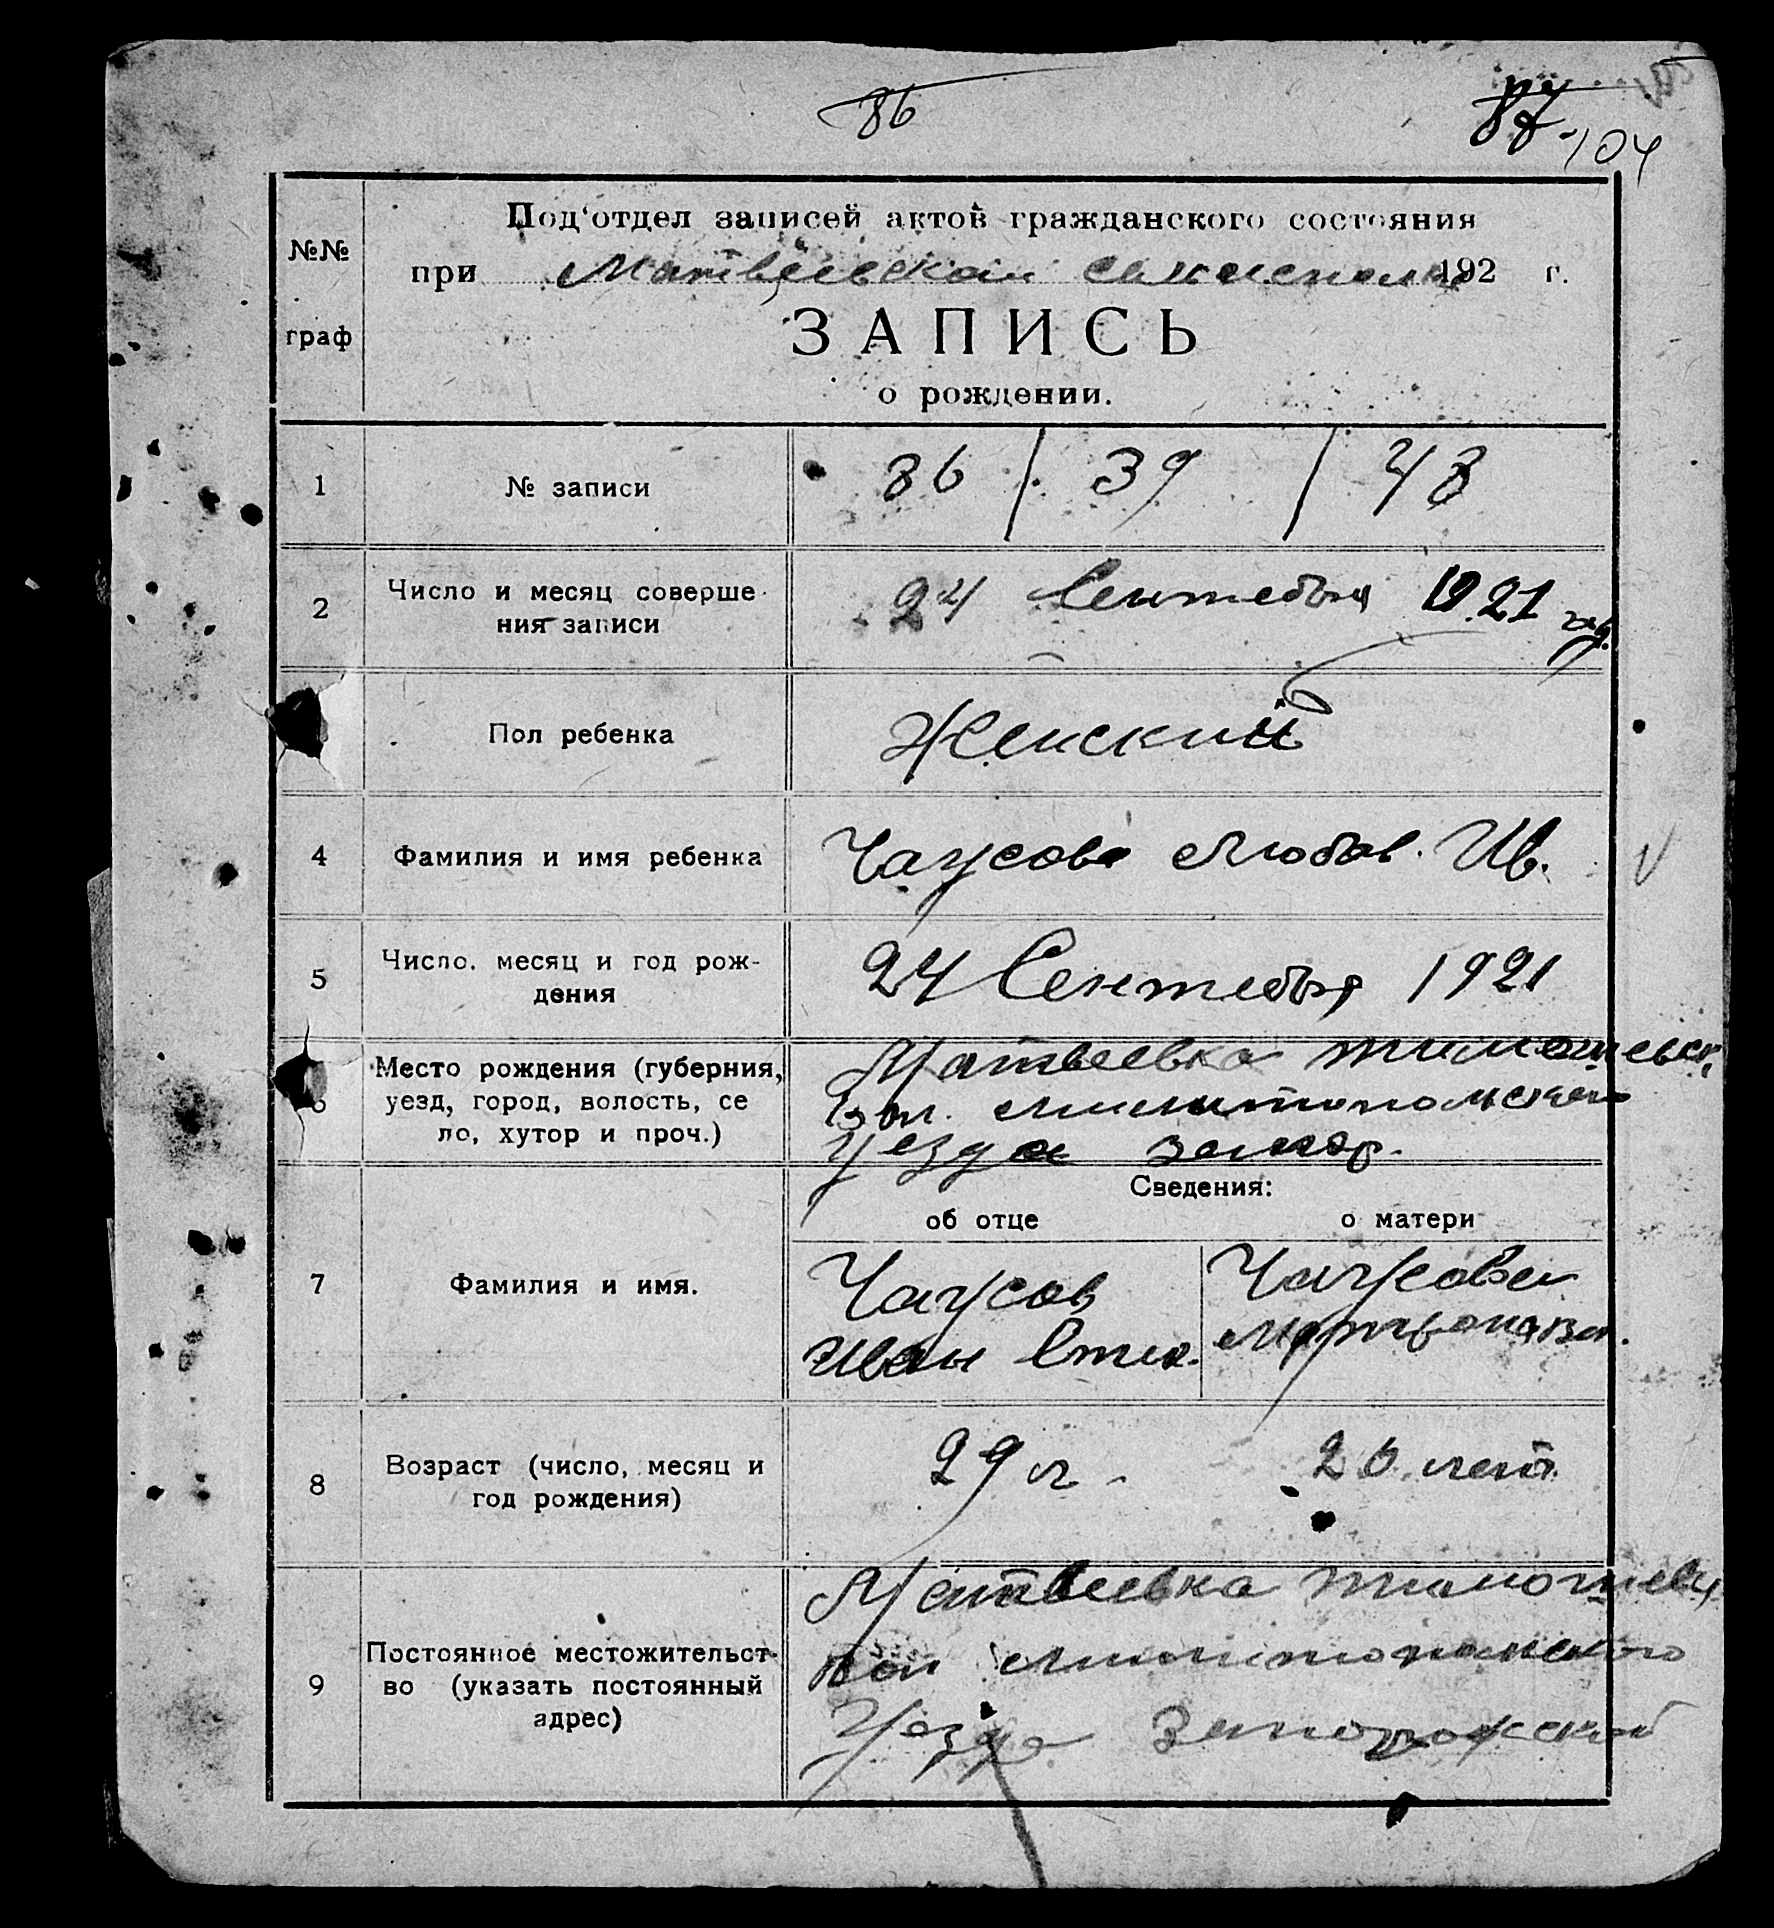 86
87
104
Под‘отдел записей актов гражданского состояния
№№
при Матвеевском 192 г.
граф
ЗАПИСЬ
о рождении.
1 № записи 86 / 39 / 48
2 Число и месяц соверше 24 Сентебря 1921
ния записи
Пол ребенка Женский
4 Фамилия и имя ребенка Чаусова Любов. Ив.
Число, месяц и год рож- 24 Сентебря 1921
5
дения
Матвеевка тимошевск.
Место рождения (губерния,
6 уезд, город, волость, се Вол. Милитопольского
ло, хутор и проч.) уезда запор.
Сведения:
об отце о матери
7 Фамилия и имя. Чаусов Чаусова
Иван
Возраст (число, месяц и 29 л. 26 лет.
8
год рождения)
Матвеевка тимошевск
Постоянное местожительст-
9 во (указать постоянный Вол Милитопольского
адрес) Уезда Запорожской